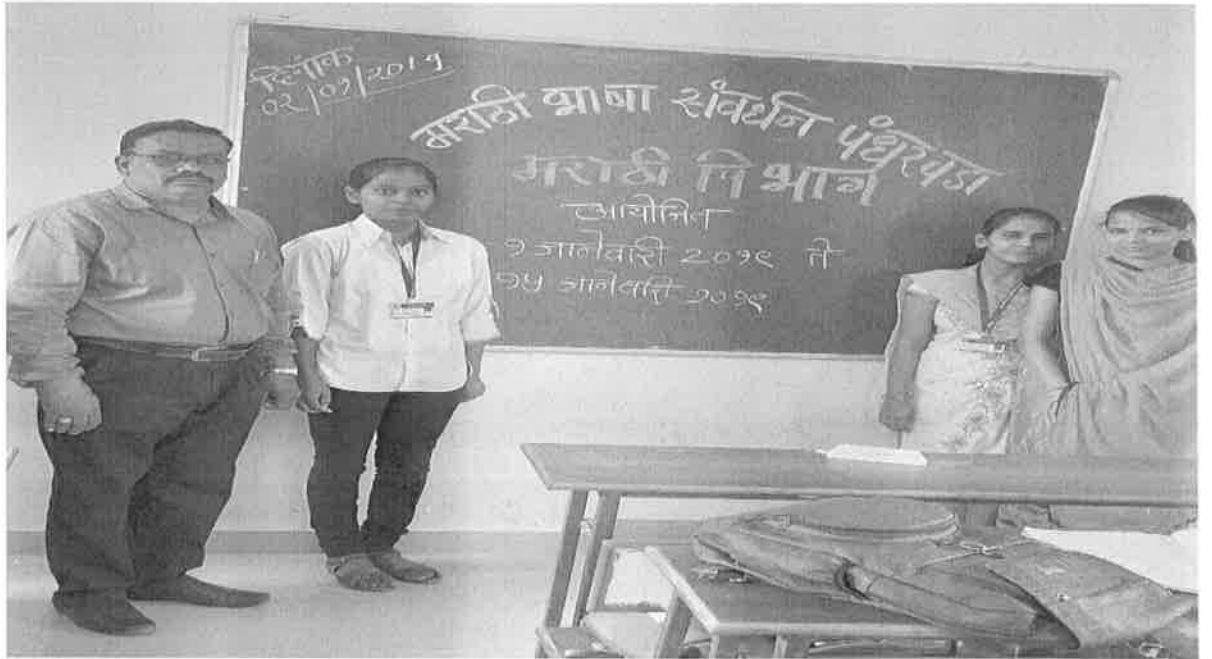 दिनांक
02/01/2019
मराठी भाषा संवर्धन पंधरवडा
मराठी विभाग
आयोजित
१ जानेवारी २०१९ ते
१५ जानेवारी २०१९